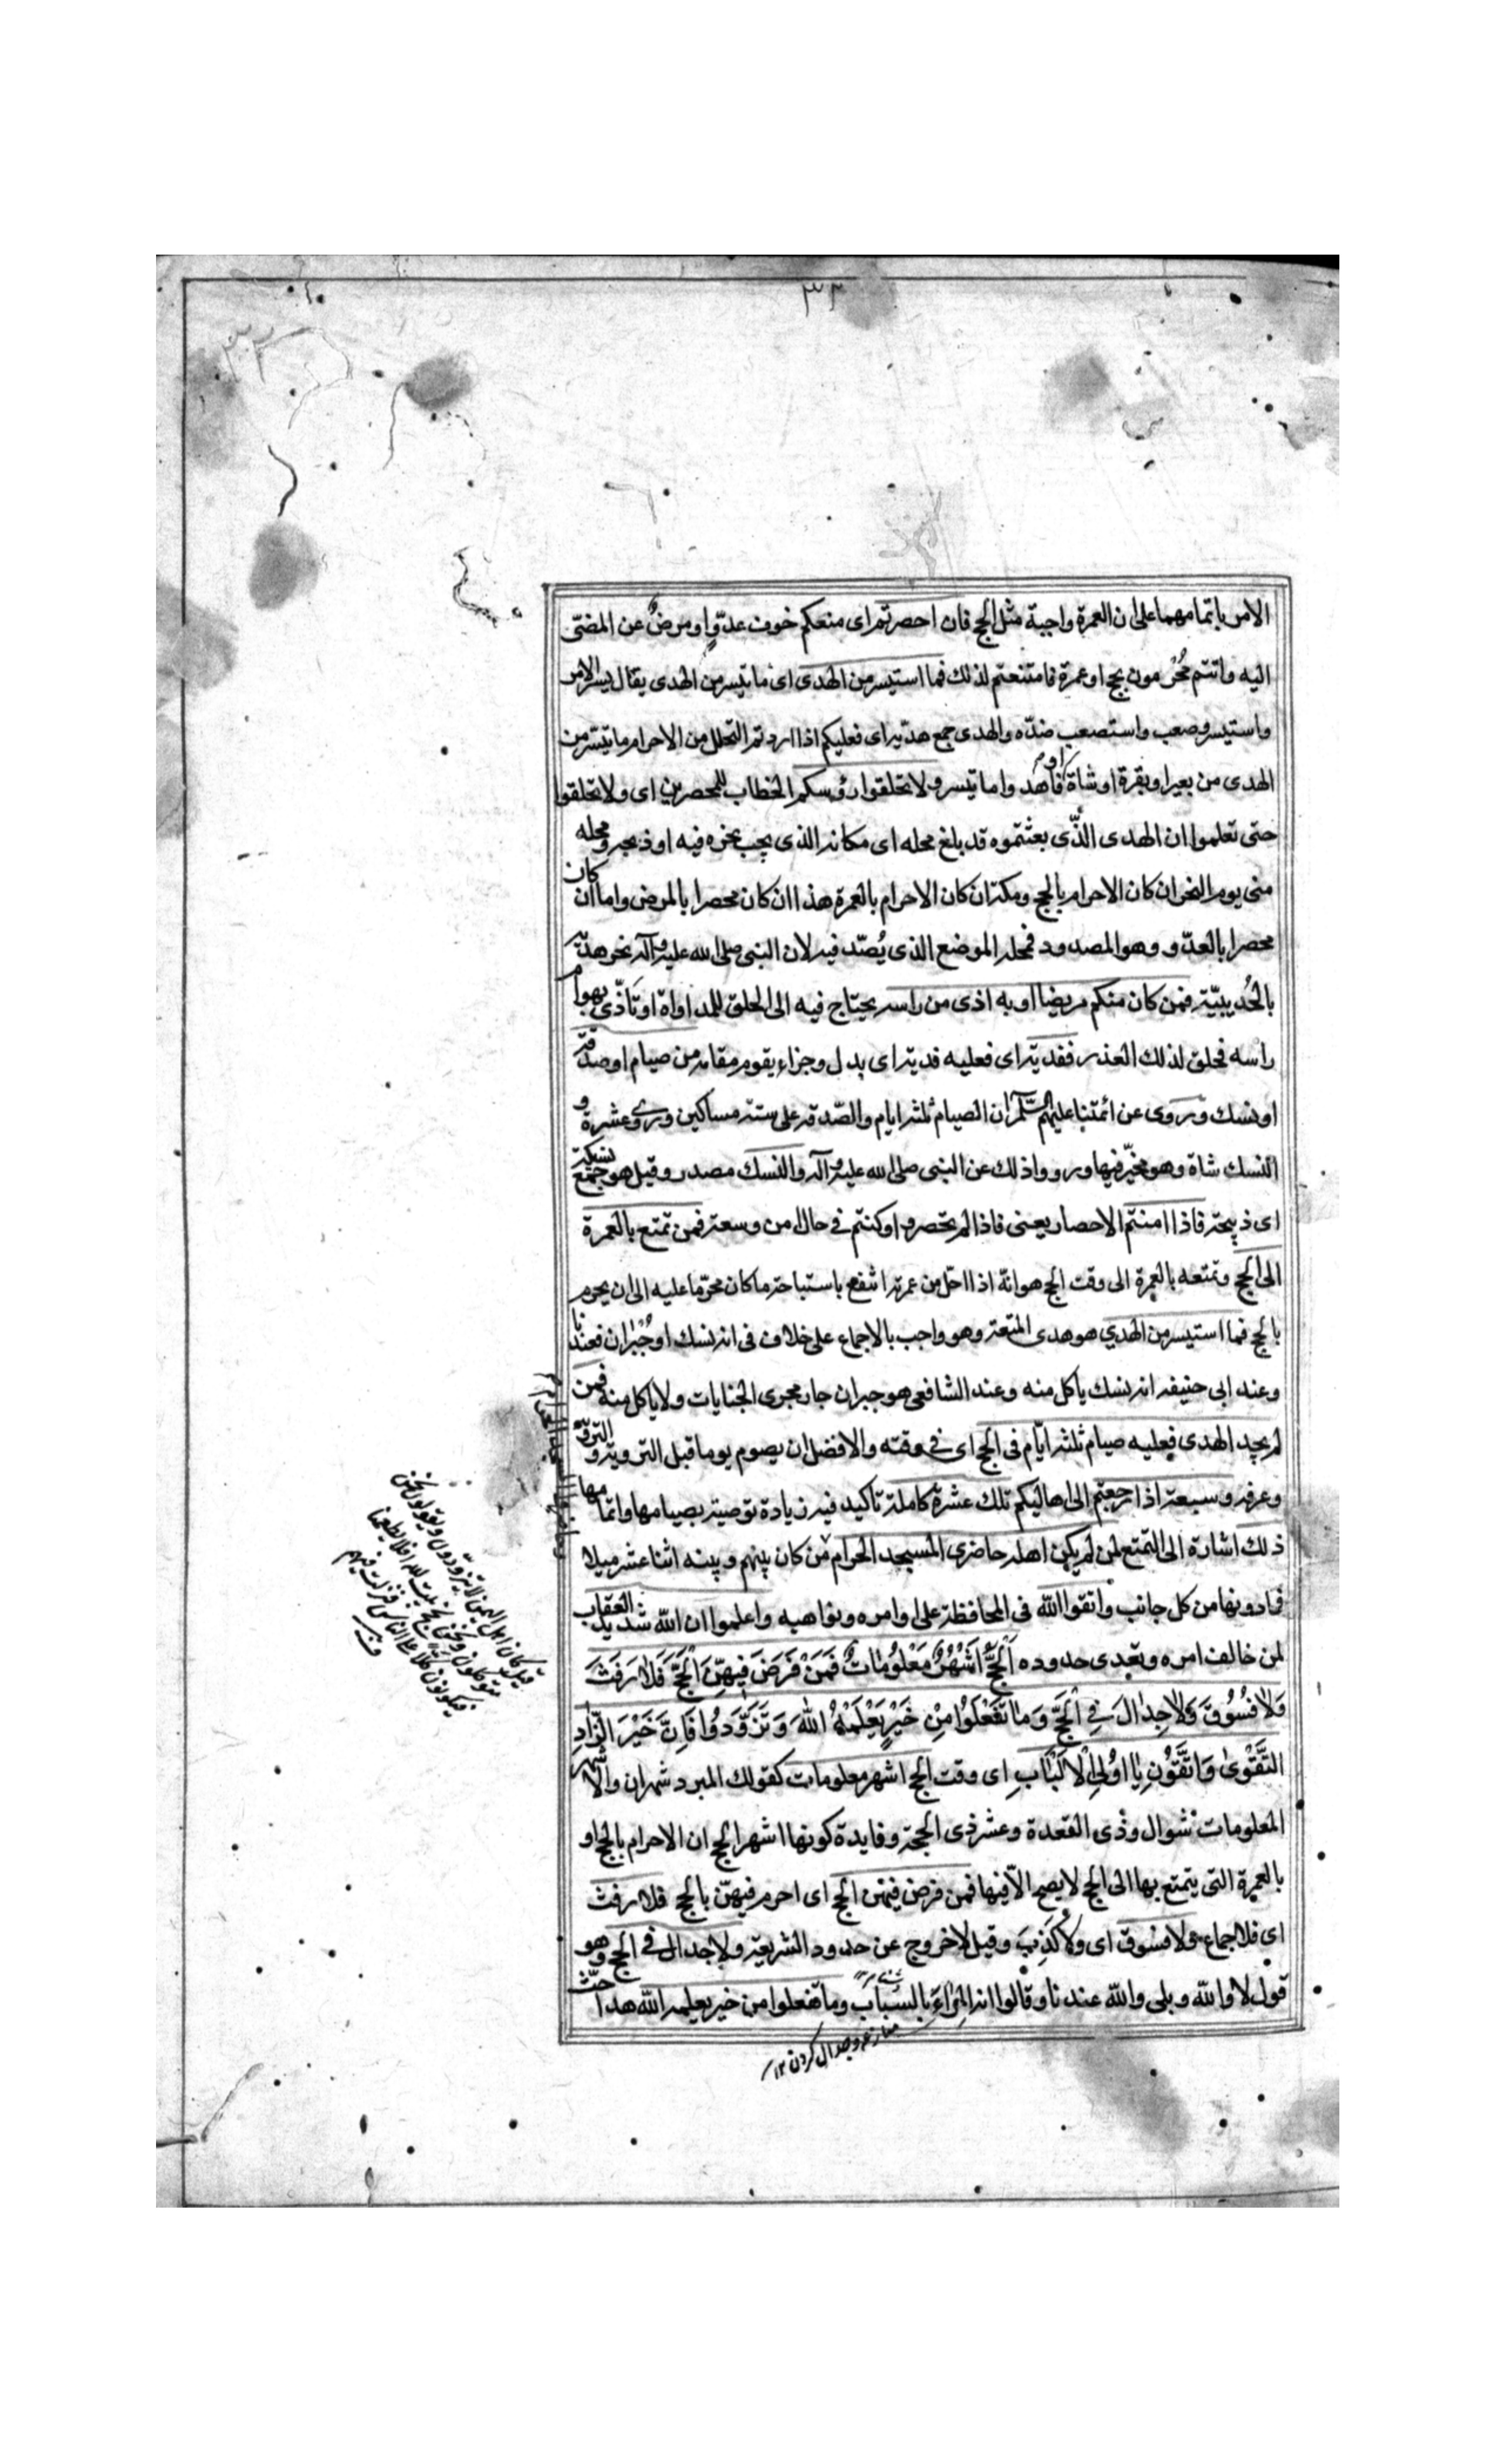 ٣٣
الامر باتمامهما على ان العمرة واجبة مثل الحج فان احصرتم اى منعكم خوف عدوّ او مرض عن المضىّ
اليه وانتم مُحْرمون بحج او عمرة فامتنعتم لذلك فما استيسر من الهدى اى ما تيسر من الهدى يقال يسر الامر
واستيسر وصعب واستصعب ضدّه والهدى جمع هدية اى فعليكم اذا اردتم التحلل من الاحرام ما تيسّر من
الهدى من بعير او بقرة او شاة فاهدوا ما تيسر ولا تحلقوا رؤسكم الخطاب للمحصرين اى ولا تحلقوا
حتى تعلموا ان الهدى الذّى بعثتموه قد بلغ محله اى مكانه الذى يجب نحره فيه او ذبحه ومحله
منى يوم النحر ان كان الاحرام بالحج ومكة ان كان الاحرام بالعمرة هذا ان كان محصرا بالمرض واما ان كان
محصرا بالعدّو وهو المصدود فمحله الموضع الذى يُصّد فيه لان النبى صلى الله عليه وآله نحر هديه
بالحُديبيّة فمن كان منكم مريضا او به اذى من راسه يحتاج فيه الى الحلق للمداواة او تأذّى بهوام
راسه فحلق لذلك العذر ففدية اى فعليه فدية اى بدل وجزاء يقوم مقامه من صيام او صدقة
او نسك وروى عن ائمتنا عليهم السّلم ان الصيام ثلثة ايام والصّدقة على ستة مساكين وروى عشرة و
النسك شاة وهو مخيّر فيها ورووا ذلك عن النبى صلى الله عليه وآله والنسك مصدر وقيل هو جمع نسيكة
اى ذبيحة فاذا امنتم الاحصار يعنى فاذا لم تحصروا وكنتم فى حال امن وسعة فمن تمتع بالعمرة
الى الحج وتمتعه بالعمرة الى وقت الحج هو انّه اذا احلّ من عمرته انتفع باستباحة ما كان محرّما عليه الى ان يحرم
بالحج فما استيسر من الهدي هو هدى المتعة وهو واجب بالاجماع على خلاف فى انه نسك او جُبْران فعندنا
وعند ابى حنيفه انه نسك ياكل منه وعند الشافعى هو جبران جار مجرى الجنايات ولا ياكل منه فمن
لم يجد الهدى فعليه صيام ثلثة ايّام فى الحج اى فى وقته والافضل ان يصوم يوما قبل التروية والتروية
وعرفة وسبعة اذا رجعتم الى اهاليكم تلك عشرة كاملة تاكيد فيه زيادة توصية بصيامها واتمامها
ذلك اشارة الى التمتع لمن لم يكن اهله حاضرى المسجد الحرام من كان بينهم وبينه اثنا عشر ميلا
فما دونها من كل جانب واتقوا الله فى المحافظة على اوامره ونواهيه واعلموا ان الله شديد العقاب
لمن خالف امره وتعدى حدوده اَلْحَجُّ اَشْهُرٌ مَعْلُومٰاتٌ فَمَنْ فَرَضَ فِيهِنَّ الْحَجَّ فَلاٰ رَفَثَ
وَلاٰ فُسُوقَ وَلاٰ جِدٰالَ فِي الْحَجِّ وَمٰا تَفْعَلُوا مِنْ خَيْرٍ يَعْلَمْهُ اللهُ وَتَزَوَّدُوا فَاِنَّ خَيْرَ الزّٰادِ
التَّقْوىٰ وَاتَّقُونِ يٰا اُولِي الْاَلْبٰابِ اى وقت الحج اشهر معلومات كقولك البرد شهران والاشهر
المعلومات شوال وذى القعدة وعشر ذى الحجة وفايدة كونها اشهر الحج ان الاحرام بالحج او
بالعمرة التى يتمتع بها الى الحج لا يصح الاّ فيها فمن فرض فيهن الحج اى احرم فيهنّ بالحج فلا رفث
اى فلا جماع ولا فسوق اى ولا كَذِبَ وقيل لا خروج عن حدود الشريعة ولا جدال فى الحج وهو
قول لا والله وبلى والله عندنا وقالوا انه المِرٰاءُ بالسباب وما تفعلوا من خير يعلمه الله هذا حثّ
وجدال كردن ١٢
قيل كان اهل اليمن لا يتزودون ويقولون نحن
متوكلون ونحن نحج بيت الله افلا يطعمنا
فيكونون كلا على الناس فنزلت فيهم